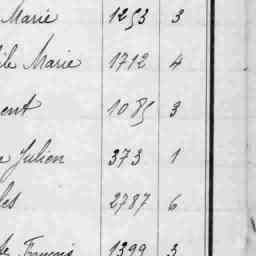 Marie 1253 3
ile Marie 1712 4
ent 1085 3
e Julien 373 1
les 2787 6
François 1399 3